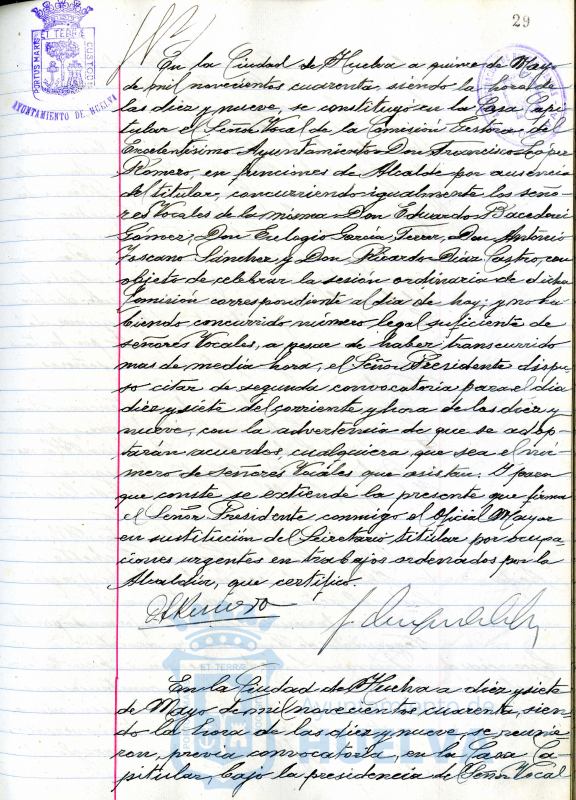 29
PORTUS MARIS ET TERRÆ CUSTODIA
AYUNTAMIENTO DE HUELVA
En la Ciudad de Huelva a quince de Mayo
de mil novecientos cuarenta, siendo la hora de
las diez y nueve, se constituyó en la Casa Capi
tular el Señor Vocal de la Comisión Gestora del
Excelentísimo Ayuntamiento Don Francisco López
Romero, en funciones de Alcalde por ausencia
del titular, concurriendo igualmente los seño
res Vocales de la misma Don Eduardo
Gómez, Don Eulogio García Ferrer, Don Antonio
Toscano Sánchez y Don Ricardo Díaz Castro, con
objeto de celebrar la sesión ordinaria de dicha
Comisión correspondiente al día de hoy; y no ha
biendo concurrido número legal suficiente de
señores Vocales, a pesar de haber transcurrido
mas de media hora, el Señor Presidente dispu
so citar de segunda convocatoria para el día
diez y siete del corriente y hora de las diez y
nueve, con la advertencia de que se adop
tarán acuerdos, cualquiera que sea el nú
mero de señores Vocales que asistan. Y para
que conste se extiende la presente que firma
el Señor Presidente conmigo el Oficial Mayor
en sustitución del Secretario titular por ocupa
ciones urgentes en trabajos ordenados por la
Alcaldía, que certifico.
ET TERRÆ
Ayuntamiento de
HUELVA
En la Ciudad de Huelva a diez y siete
de Mayo de mil novecientos cuarenta, sien
do la hora de las diez y nueve, se reunie
ron, previa convocatoria, en la Casa Ca
pitular, bajo la presidencia del Señor Vocal